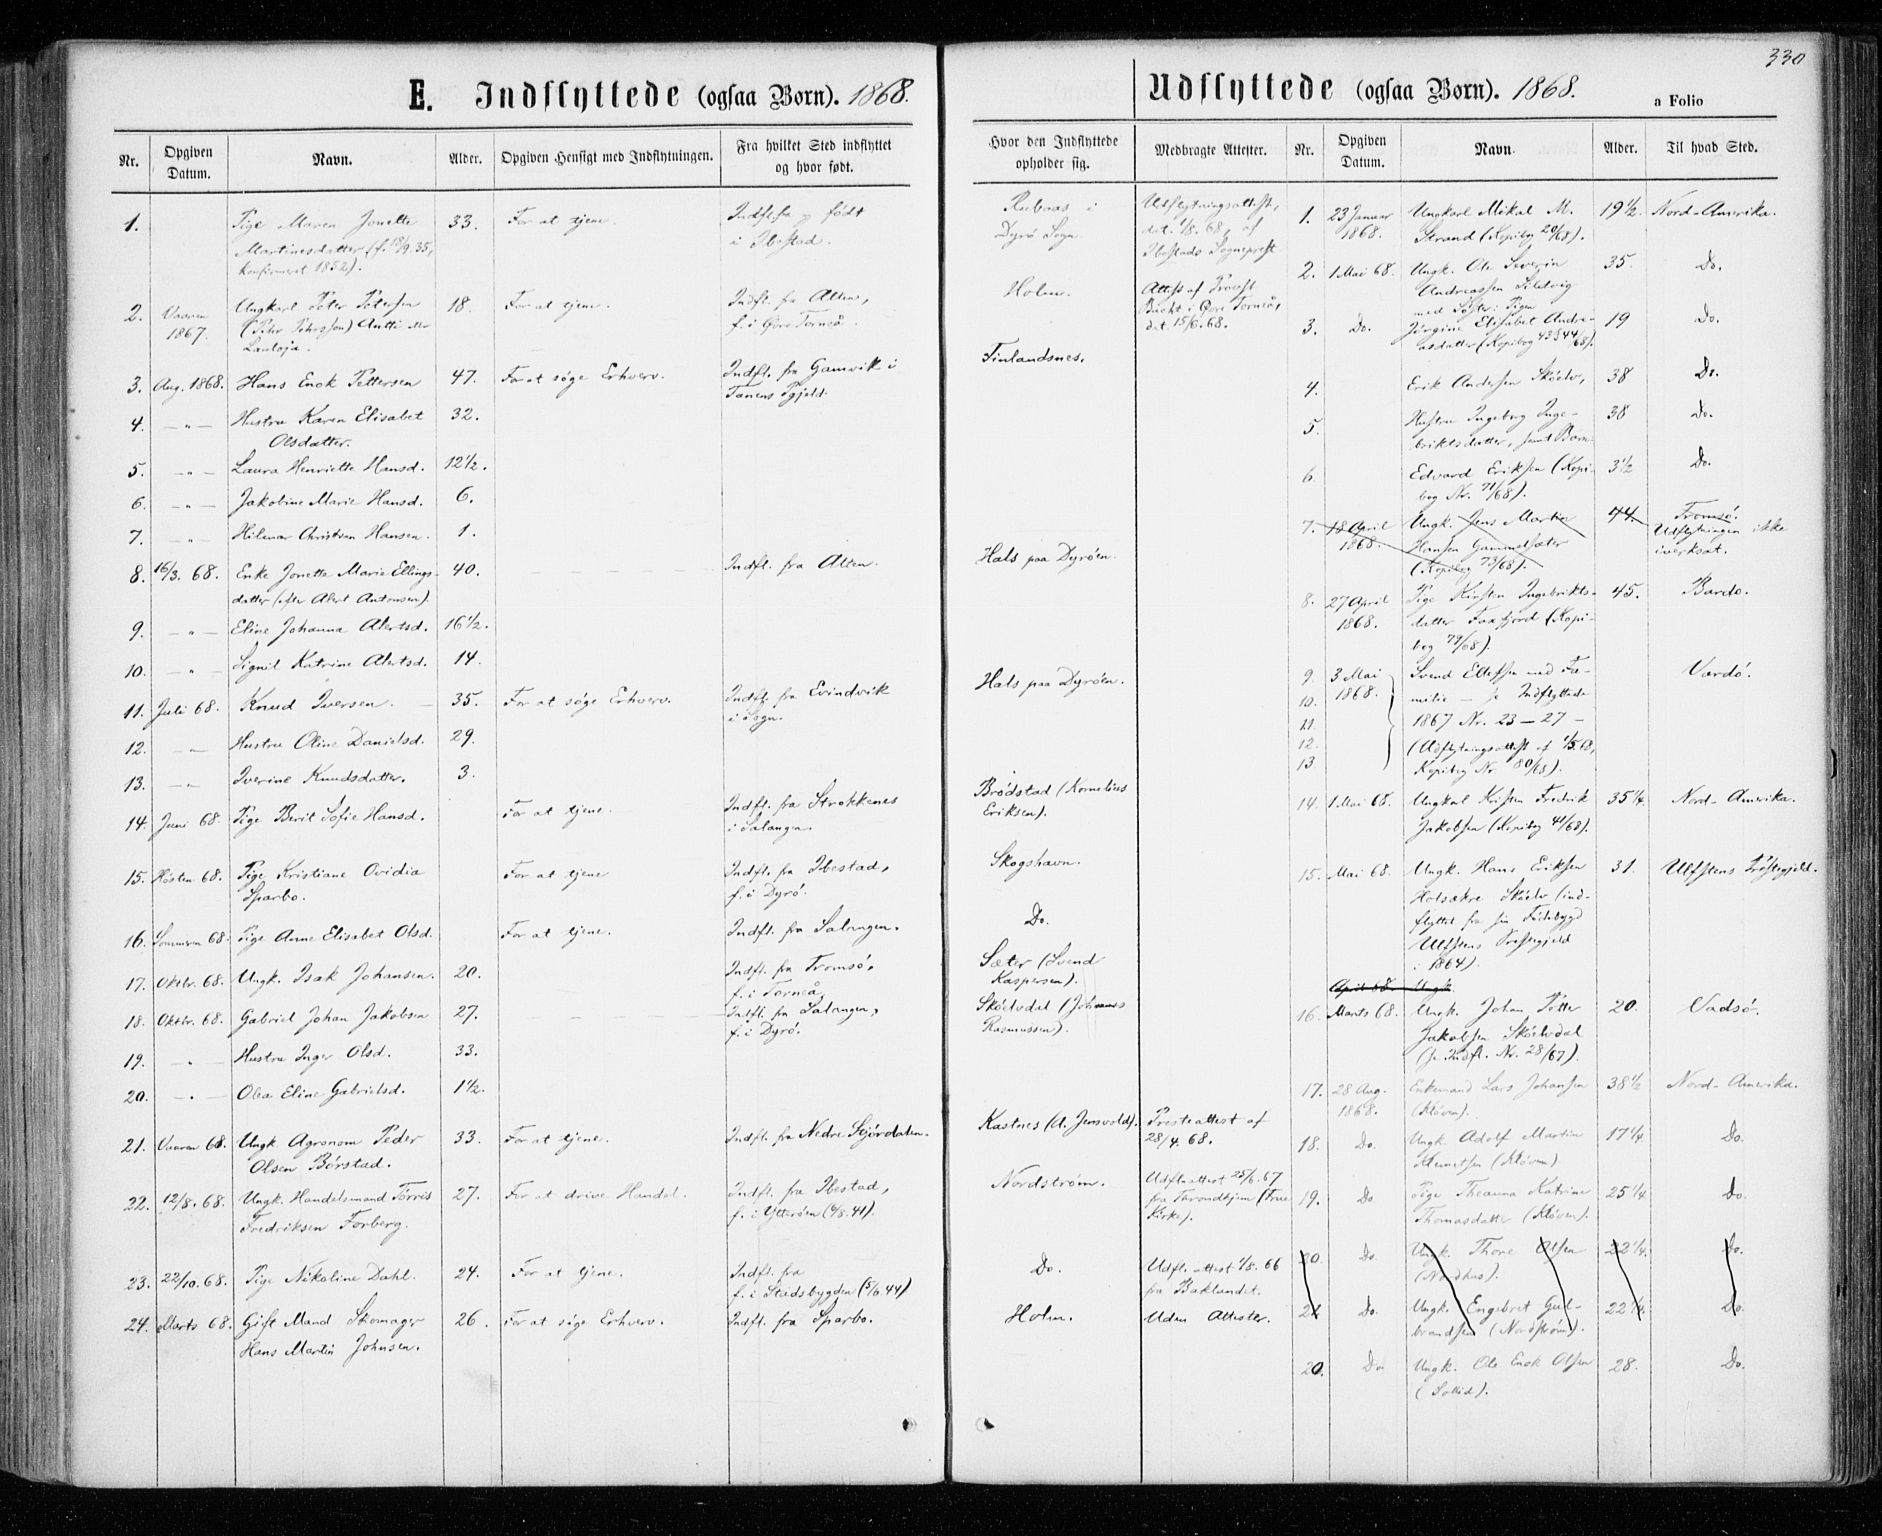 330
E. Indflyttede (ogsaa Børn). 1868.
Nr.
Opgiven Datum.
Navn.
Alder.
Opgiven Hensigt med Indflytningen.
Fra hvilket Sted indflyttet
og hvor født.
Hvor den Indflyttede
opholder sig.
Medbragte Attester.
1. Pige Maren Jonette 33. For at tjene. Indfl. fra og født
Martinesdatter (f. 18/9.35, i Ibestad. Dyrø Sogn
konfirmeret 1852).
Udflytningsattest,
dat. 1/8. 68, af
Ibestads Sogneprest
2. Vaaren 1867. Ungkarl Peter Petersen 18. For at tjene. Indfl. fra Alten, Holm. Attest af Provst
(Pehr Pehrsson) Antti
Lantoja. f. i Øvre Torneå.
Bucht i Øvre Torneå,
dat. 15/6. 68.
3. Aug. 1868. Hans Enok Pettersen 47. For at søge Erhverv. Indfl. fra Gamvik i Finlandsnes.
Tanens Pgjeld.
4. — " — Hustru Karen Elisabet 32.
Olsdatter.
5. — " — Laura Henriette Hansd. 12½.
6. — " — Jakobine Marie Hansd. 6.
7. — " — Hilmar Christian Hansen. 1.
8. 16/3. 68. Enke Jonette Marie Ellings- 40. Indfl. fra Alten. Hals paa Dyrøen.
datter (efter Alert Antonsen).
9. — " — Eline Johanna Alertsd. 16½.
10. — " — Signil Katrine Alertsd. 14.
11. Juli 68. Knud Iversen. 35. For at søge Erhverv. Indfl. fra Evindvik Hals paa Dyrøen.
i Sogn.
12. — " — Hustru Oline Danielsd. 29.
13. — " — Iverine Knudsdatter. 3.
14. Juni 68. Pige Berit Sofie Hansd. For at tjene. Indfl. fra Strokkenes Brødstad (Kornelius
i Salangen. Eriksen).
15. Høsten 68. Pige Kristiane Ovidia For at tjene Indfl. fra Ibestad, Skogshavn.
Sparbo. f. i Dyrø.
16. Sommeren 68. Pige Anne Elisabet Olsd. For at tjene. Indfl. fra Salangen. Do.
17. Oktbr. 68. Ungk. Isak Johansen. 20. Indfl. fra Tromsø, Sæter (Svend
f. i Torneå Kaspersen).
18. Oktbr. 68. Gabriel Johan Jakobsen 27. Indfl. fra Salangen, Skøelvdal (Johannes
f. i Dyrø. Rasmussen).
19. — " — Hustru Inger Olsd. 33.
20. — " — Olea Eline Gabrielsd. 1½.
21. Vaaren 68. Ungk. Agronom Peder 33. For at tjene. Indfl. fra Nedre Stjørdalen. Kastnes (A. Jensvold). Presteattest af
Olsen Børstad. 28/4. 68.
22. 12/8. 68. Ungk. Handelsmand Tørris 27. For at drive Handel. Indfl. fra Ibestad, Nordstrøm. Udfl.attest 25/6. 67
Fredriksen Forberg. f. i Ytterøen (6/8. 41). fra Throndhjem (Frue
Kirke).
23. 22/10. 68. Pige Nikoline Dahl. 24. For at tjene. Indfl. fra Do. Udfl. attest 1/8. 66
f. i Stadsbygden (5/6 44) fra Baklandet.
24. Marts 68. Gift Mand Skomager 26. For at søge Erhverv. Indfl. fra Sparbo. Holm. Uden Attester.
Hans Martin Johnsen.
Udflyttede (ogsaa Børn). 1868.
a Folio
Nr.
Opgiven Datum.
Navn.
Alder.
Til hvad Sted.
1. 23 Januar 1868. Ungkarl Mikal M. 19½. Nord-Amerika.
Strand (Kopibog 20/68).
2. 1 Mai 68. Ungk. Ole Severin 35. Do.
Andreassen Sildvig
med Søster: Pigen
3. Do. Jørgine Elisabet Andre- 19 Do.
asdatter (Kopibog 43 & 44/68).
4. Erik Andersen Skøelv, 38 Do.
5. Hustru Ingeborg Inge- 38 Do.
briktsdatter, samt Barn:
6. Edvard Eriksen (Kopi- 3½ Do.
bog Nr. 71/68).
7. 18 April 1868. Ungk. Jens Martin 44. Tromsø.
Hansen Gammelsæter Udflytningen ikke
(Kopibog 73/68). iverksat.
8. 27 April 1868. Pige Kirsten Ingebrikts- 45. Bardo.
datter Faxfjord (Kopi-
bog 79/68).
9. 3 Mai 1868. Svend Ellefsen med Fa- Vardø.
10. milie — se Indflyttede
11. 1867 Nr. 23 — 27 —
12. (Udflytningsattest af 1/5.68,
13 Kopibog Nr. 80/68).
14. 1 Mai 68. Ungkarl Kristen Fredrik 35¼. Nord-Amerika.
Jakobsen (Kopibog 41/68).
15. Mai 68. Ungk. Hans Eriksen 31. Ulfstens Præstegjeld.
Holsækre Skøelv (ind-
flyttet fra sin Fødebygd
Ulfstens Prestegjeld
i 1864).
April 68. Ungk.
16. Marts 68. Ungk. Johan Petter 20. Vadsø.
Jakobsen Skøelvdal
(se Indfl. Nr. 28/67).
17. 28 Aug. 1868. Enkemand Lars Johansen 38½ Nord-Amerika.
(Kløven).
18. Do. Ungk. Adolf Martin 17¼. Do.
Klemetsen (Kløven)
19. Do Pige Theanna Katrine 25¼ Do.
Thomasdatter (Kløven).
20. Do. Ungk. Thore Olsen 22¼. Do.
(Nordhus).
21 Do. Ungk. Engebret Gul- 22¼. Do.
brandsen (Nordstrøm).
20. Do Ungk. Ole Enok Olsen 28. Do.
(Sollid).